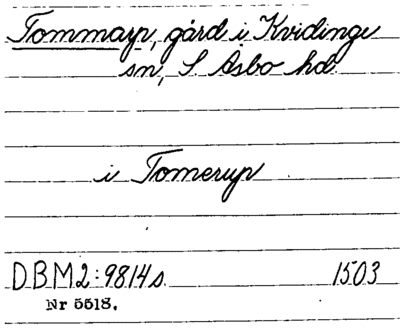 Tommarp, gård i Kvidinge
sn, S Åsbo hd
i Tomerup
DBM2:9814s. 1503
Nr 5518.